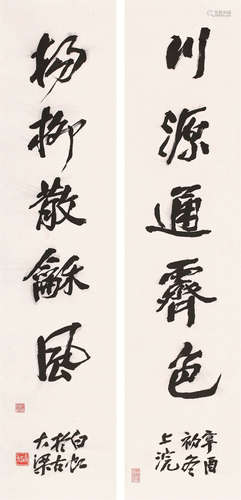 川源通霽色
辛酉
初冬
上浣
楊柳散龢風
白紅
於古
大梁